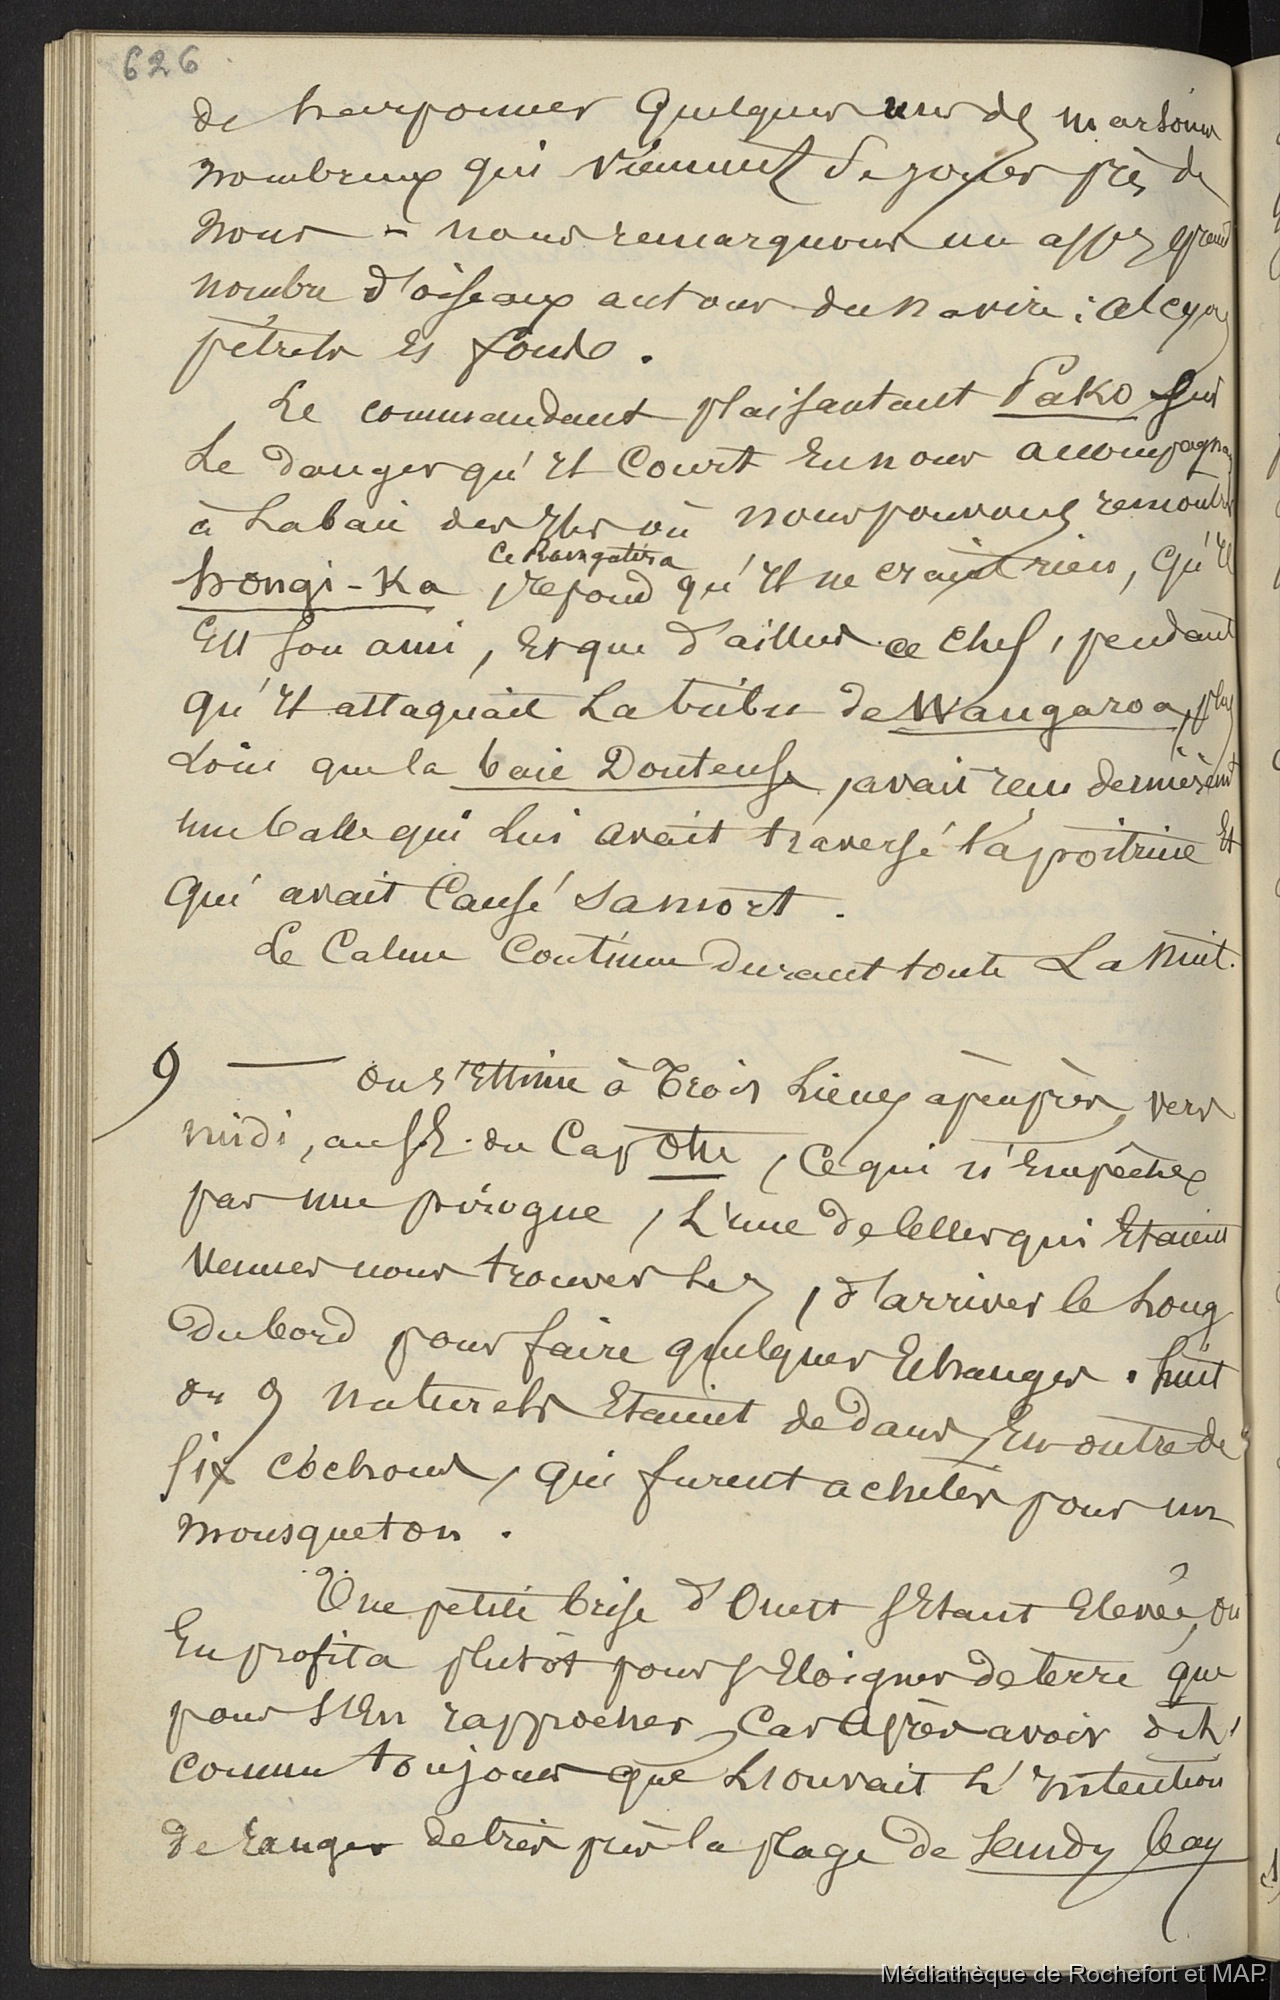 626
de harponner quelques uns des marsouins
nombreux qui viennent se jouer près de
nous - nous remarquons un assez grand
nombre d'oiseaux autour du navire : alcyons
pétrels et fouls.
Le commandant plaisantant Pako sur
le danger qu'il court en nous accompagnant
à la baie des Iles où nous pouvons rencontrer
ce Rangatira
hongi-Ka, répond qu'il ne craint rien, qu'il
est son ami, et que d'ailleurs ce chef, pendant
qu'il attaquait la tribu de Wangaroa, plus
loin que la baie Douteuse, avait reçu dernièrement
une balle qui lui avait traversé la poitrine et
qui avait causé sa mort.
Le calme continue durant toute la nuit.
9 — on s'estime à trois lieues à peu près, vers
midi, au S.E. du Cap Otu, ce qui n'empêche
pas une pirogue, l'une de celles qui étaient
venues nous trouver hier, d'arriver le long
du bord pour faire quelques échanges. huit
ou 9 naturels étaient dedans, en outre de
six cochons, qui furent achetés pour un
mousqueton.
Une petite brise d'Ouest s'étant élevée, on
en profita plutôt pour s'éloigner de terre que
pour s'en rapprocher, car après avoir dit,
comme toujours que l'on avait l'intention
de ranger de très près la plage de Sandy bay
Médiathèque de Rochefort et MAP